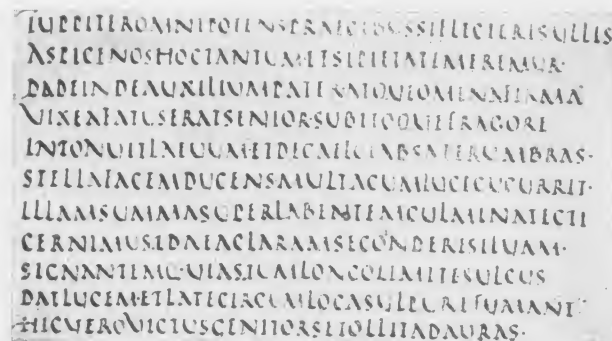 IUPPITEROMNIPOTENSPRAECIBUSSIFLECTERISULLIS
ASPICENOSHOCTANTUMETSIPIETATEMEREMUR·
DADEINDEAUXILIUMPATERATQUEOMENAFIRMA
UIXEAFATUSERATSENIORSUBITOQUEFRAGORE
INTONUITLAEUUMETDECAELOLAPSAPERUMBRAS·
STELLAFACEMDUCENSMULTACUMLUCECUCURRIT·
ILLAMSUMMASUPERLABENTEMCULMINATECTI
CERNIMUSIDAEACLARAMSECONDERESILUAM·
SIGNANTEMQ·UIAS·TUMLONGOLIMITESULCUS
DATLUCEMETLATECIRCUMLOCASULPUREFUMANT
HICUEROUICTUSGENITORSETOLLITADAURAS·